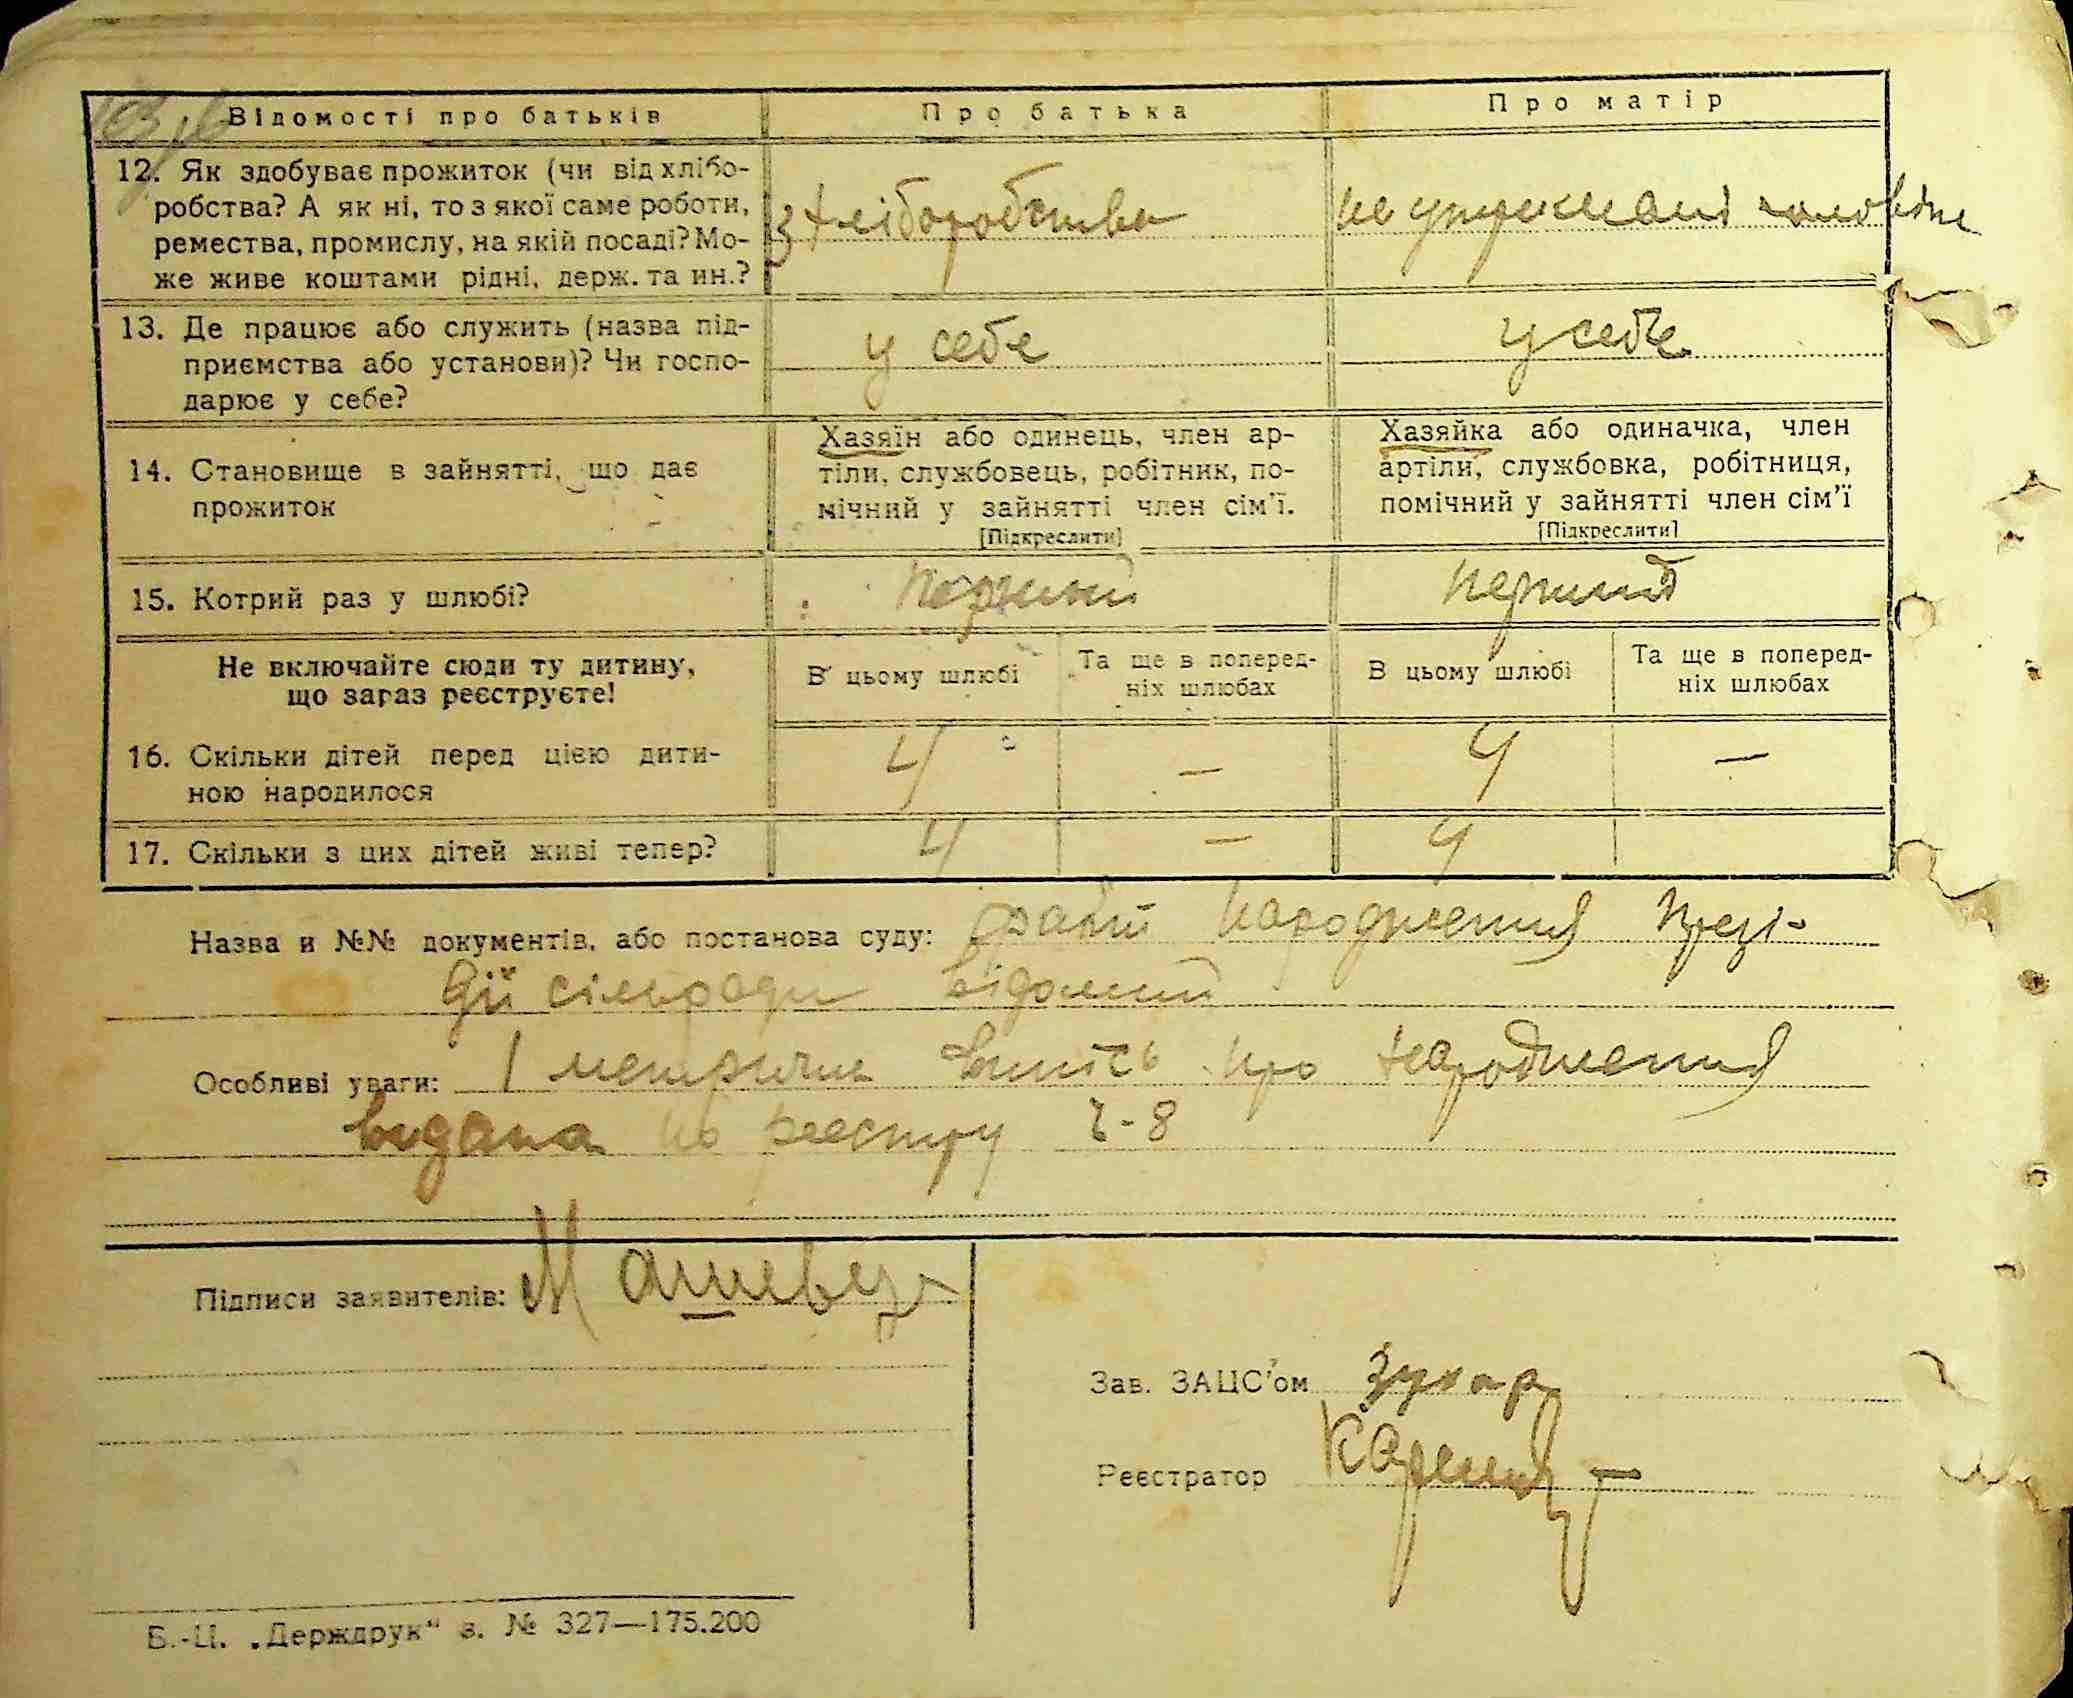 Відомості про батьків
Про батька
Про матір
12. Як здобуває прожиток (чи від хлібо-
робства? А як ні, то з якої саме роботи,
ремества, промислу, на якій посаді? Мо-
же живе коштами рідні, держ. та ин.?
з хліборобства
на утриманні чоловіка
13. Де працює або служить (назва під-
приємства або установи)? Чи госпо-
дарює у себе?
у себе
у себе
14. Становище в зайнятті, що дає
прожиток
Хазяїн або одинець, член ар-
тіли, службовець, робітник, по-
мічний у зайнятті член сім'ї.
[Підкреслити]
Хазяйка або одиначка, член
артіли, службовка, робітниця,
помічний у зайнятті член сім'ї
[Підкреслити]
15. Котрий раз у шлюбі?
перший
перший
Не включайте сюди ту дитину,
що зараз реєструєте!
В цьому шлюбі
Та ще в поперед-
ніх шлюбах
В цьому шлюбі
Та ще в поперед-
ніх шлюбах
16. Скільки дітей перед цією дити-
ною народилося
4 — 4 —
17. Скільки з цих дітей живі тепер?
4 — 4
Назва и №№ документів, або постанова суду: факт народження презі-
дії сільради відомий
Особливі уваги: 1 метричн випись про народження
видана по реєстру ч-8
Підписи заявителів:
Зав. ЗАЦС'ом
Реєстратор
Б.-Ц. „Держдрук“ з. № 327—175.200